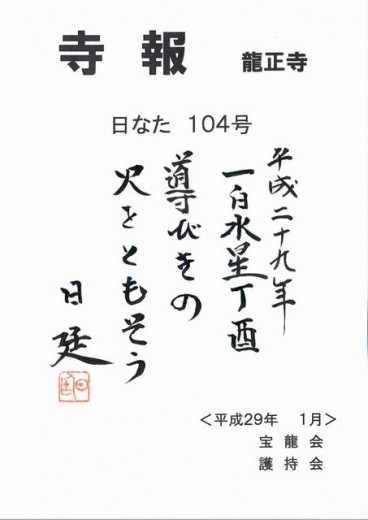 寺報 龍正寺
日なた 104号
平成二十九年
一白水星丁酉
導びきの
火をともそう
日廷
＜平成29年 1月＞
宝龍会
護持会